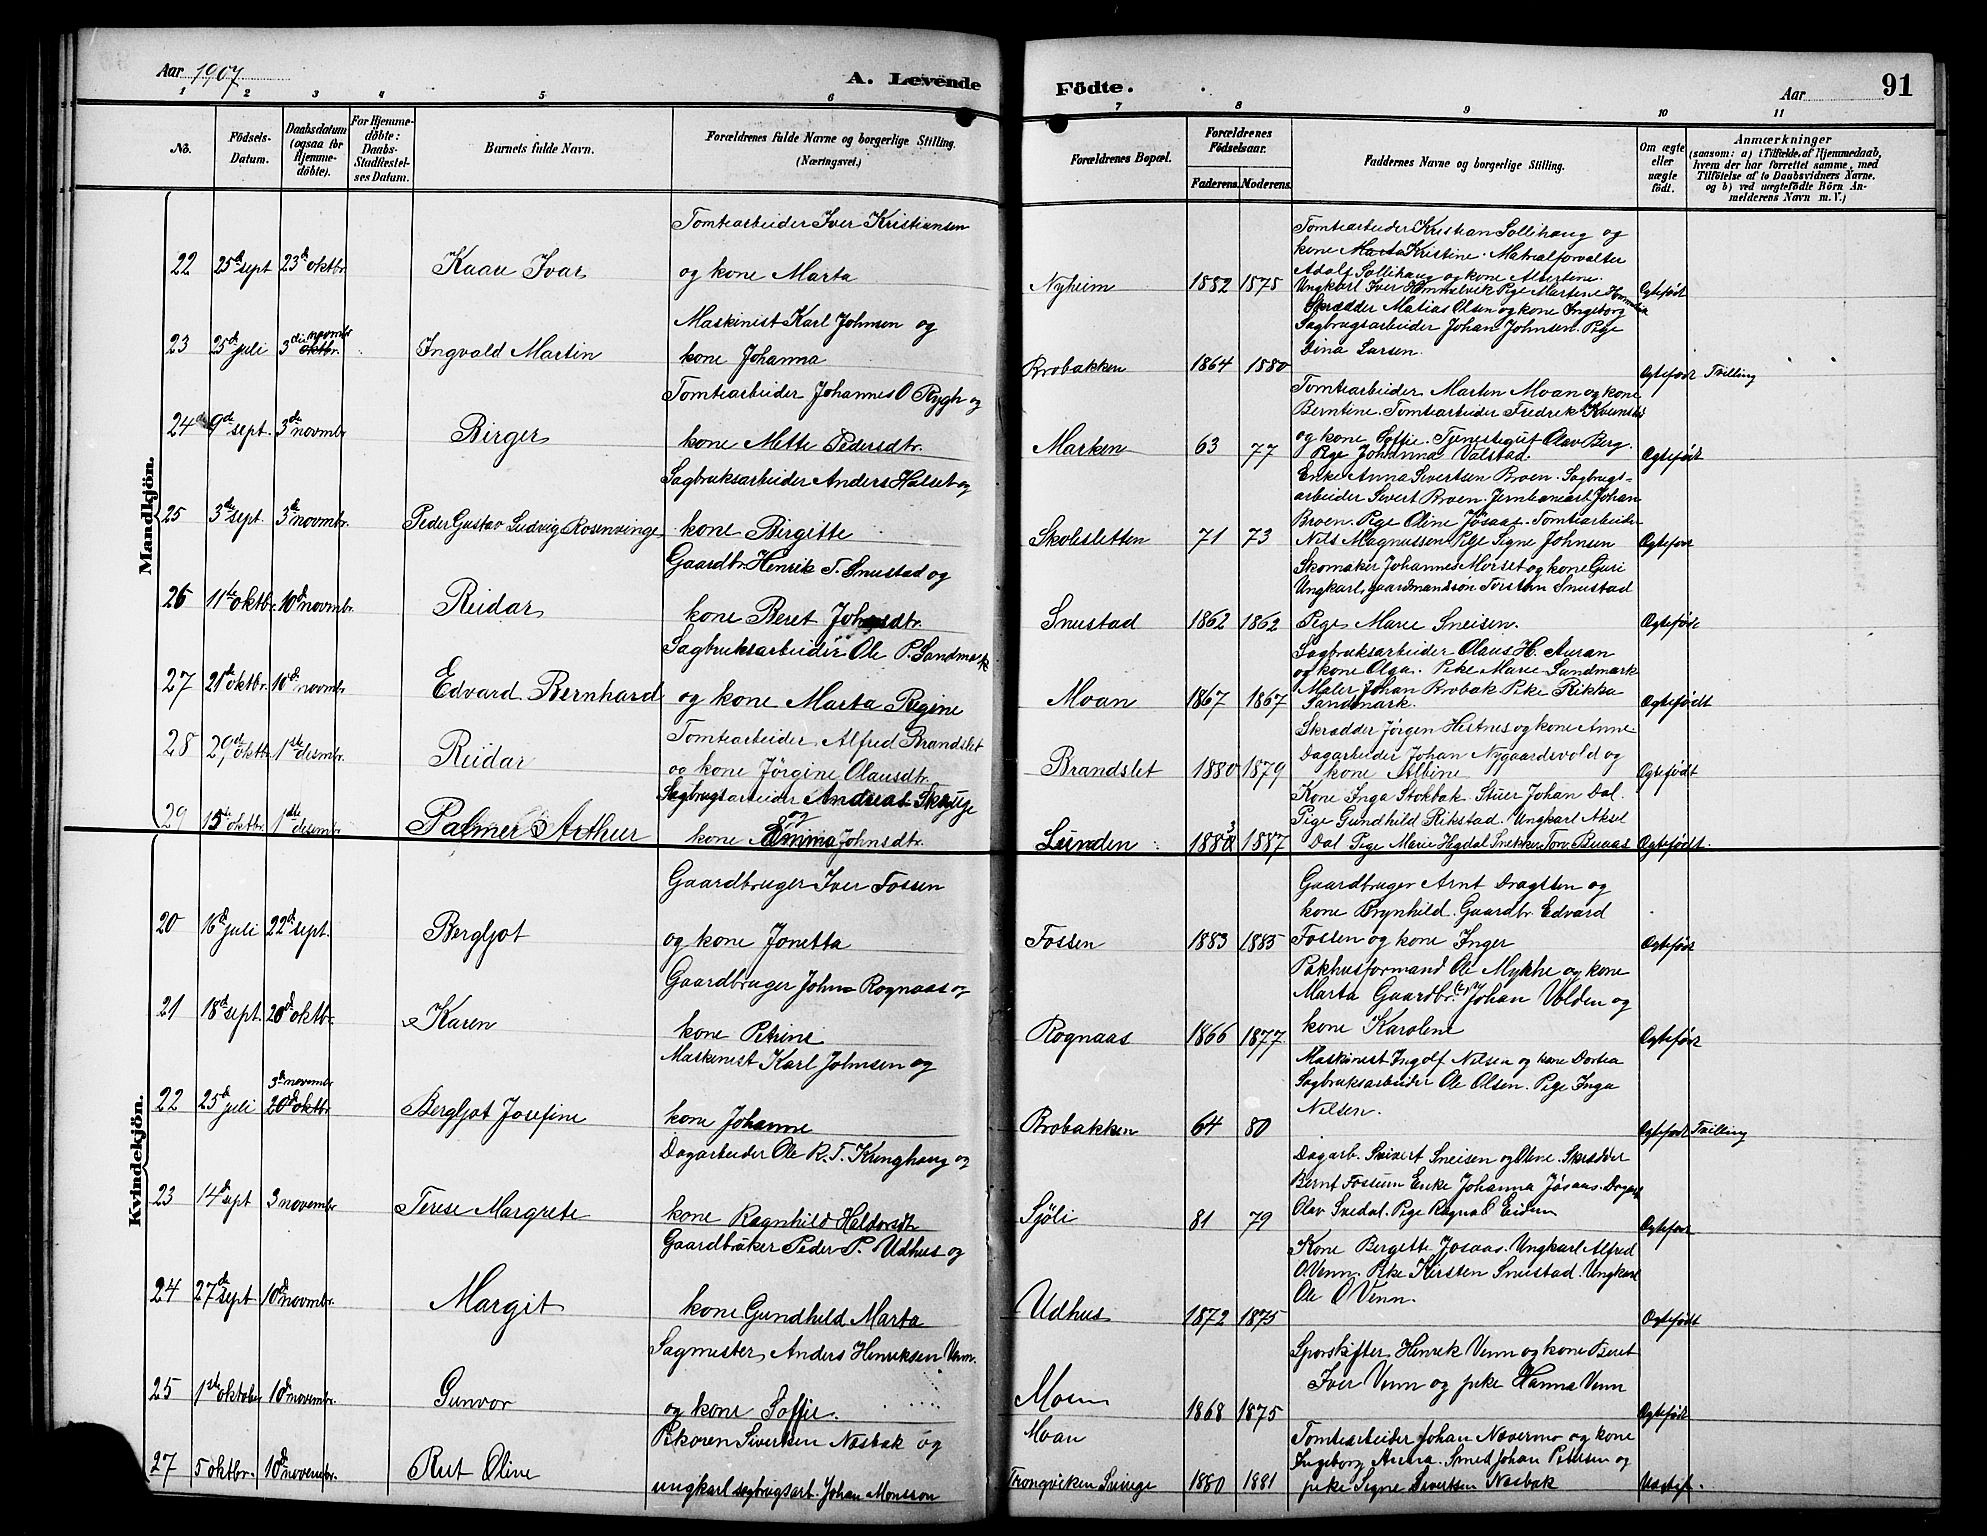 Aar 1907
A. Levende
Födte.
Aar
91
1 2 3 4 5 6 7 8 9 10 11
No.
Födsels-
Datum.
Daabsdatum
(ogsaa for
Hjemme-
döbte).
For Hjemme-
döbte:
Daabs-
Stadfæstel-
ses Datum.
Barnets fulde Navn.
Forældrenes fulde Navne og borgerlige Stilling.
(Næringsvei.)
Forældrenes Bopæl.
Forældrenes
Födselsaar.
Faderens. Moderens.
Faddernes Navne og borgerlige Stilling.
Om ægte
eller
uægte
födt.
Anmærkninger
(saasom: a) i Tilfælde af Hjemmedaab,
hvem der har forrettet samme, med
Tilföielse af to Daabsvidners Navne.
og b) ved uægtefödte Börn An-
melderens Navn m. V.)
Mandkjön.
Tomtearbeider Iver Kristiansen
22 25de sept 23de oktbr. Kaare Ivar og kone Marta
Nyheim 1882 1878 Ægtefødt
Tomtearbeider Kristian Sollihaug og
kone Marta Kristine. Matrialforvalter
Adolf Sollihaug og kone Albertine.
Ungkarl Iver Hommelvik Pige Martine
Maskinist Karl Johnsen og
23 25de juli 3die novmbr oktbr. Ingvald Martin kone Johanna
Brobakken 1864 1880 Ægtefødt Tvilling
Skrædder Matias Olsen og kone Ingeborg
Sagbrugsarbeider Johan Johnsen. Pige
Dina Larsen.
Tomtearbeider Johannes O Rygh og
24 9de sept. 3de novmbr Birger kone Mette Pedersdtr.
Marken 63 77 Ægtefødt
Tomtearbeider Marten Moan og kone
Berntine. Tomtearbeider Fredrek
og kone Soffie. Tjenestegut Olav Berg.
Pige Johanna Valstad.
Sagbruksarbeider Anders Halset og
25 3de sept 3de novmbr. Peder Gustav Ludvig Rosenvinge kone Birgitte
Skolesletten 71 73 Ægtefødt
Enke Anna Sivertsen Broen. Sagbrugs-
arbeider Sivert Broen. Jernbanearb Johan
Broen. Pige Oline Jøsaas. Tomtearbeider
Nils Magnussen Pige Signe Johnsen
Gaardbr. Henrik T. Snustad og
26 11te oktbr. 10de novmbr. Reidar kone Beret
Snustad 1862 1862 Ægtefødt
Skomaker Johannes Morset og kone Guri
Ungkarl, gaardmandssøn Torsten Snustad
Pige Marie Sneisen.
Sagbruksarbeider Ole P. Sandmark
27 21de oktbr. 10de novmbr Edvard Bernhard og kone Marta Regine
Moan 1867 1867 Ægtefødt
Sagbruksarbeider Olaus H. Auran
og kone Olga. Pike Marie Sandmark
Maler Johan Brobak Pike Rikka
Sandmark.
Tomtearbeider Alfred Brandslet
28 29de oktbr. 1ste desmbr. Reidar og kone Jörgine Olausdtr.
Brandslet 1880 1879 Ægtefødt
Skrædder Jørgen Hestnes og kone Anne
Dagarbeider Johan Nygaardsvold og
kone Albine
Sagbrugsarbeider Andreas Skauge
29 15de oktbr. 1ste desembr. Palmer Arthur og kone Emma Johnsdtr.
Lunden 1883 1887 Ægtefødt.
Kone Inga Stokbak Stuer Johan Dal.
Pige Gundhild Rikstad. Ungkarl Aksel
Dal Pige Marie Hegdal Snekker Torv Buaas
Kvindekjön.
Gaardbruger Iver Fossen
20 16de juli 22de sept. Bergljot og kone Jonetta
Fossen 1883 1885 Ægtefødt
Gaardbruger Arnt Dragsten og
kone Brynhild. Gaardbr. Edvard
Fossen og kone Inger
Gaardbruger John Rognaas og
21 18de sept. 20de oktbr. Karen kone Petrine
Rognaas 1866 1877 Ægtefødt
Pakhusformand Ole Mykke og kone
Marta Gaardbr. Johan Volden og
kone Karolene
Maskinist Karl Johnsen og
22 25de juli 3de novembr 20de oktbr Bergljot Josefine kone Johanne
Brobakken 64 80 Ægtefødt Tvilling
Maskinest Ingolf Nilsen og kone Dortea
Sagbruksarbeider Ole Olsen. Pige Inga
Nilsen.
Dagarbeider Ole R. T. Kringhaug og
23 14de sept 3 novembr Terese Margrete kone Ragnhild Haldorsdtr
Sjöli 81 79 Ægtefødt
Dagarb. Seivert Sneisen og Oline. Skrædder
Bernt Fossum Enke Johanna Jøsaas.
Olav Svedal. Pige Ragna O Eidem
Gaardbruker Peder P. Udhus og
24 27de sept 10de novmbr. Margit kone Gundhild Marta
Udhus 1872 1875 Ægtefødt
Kone Bergette Josaas. Ungkarl Alfred
O. Venn. Pike Kirsten Snustad. Ungkarl
Ole O Venn.
Sagmester Anders Henriksen Venn.
25 1ste oktober 10de novembr. Gunvor og kone Soffie.
Moan 1868 1875 Ægtefødt
Sporskifter Henrik Venn og kone Beret
Iver Venn og pike Hanna Venn
Piken Siverken Nasbak og
27 5 oktbr. 10de novembr. Rut Oline ungkarl sagbrugsarb. Johan Monsson
Moan
Trongviken Sverige 1880 1881
Tomtearbeider Johan Nævermo og kone
Ingeborg Anna. Smed Johan Pettersen og
pike Signe Sivertsen Nasbak